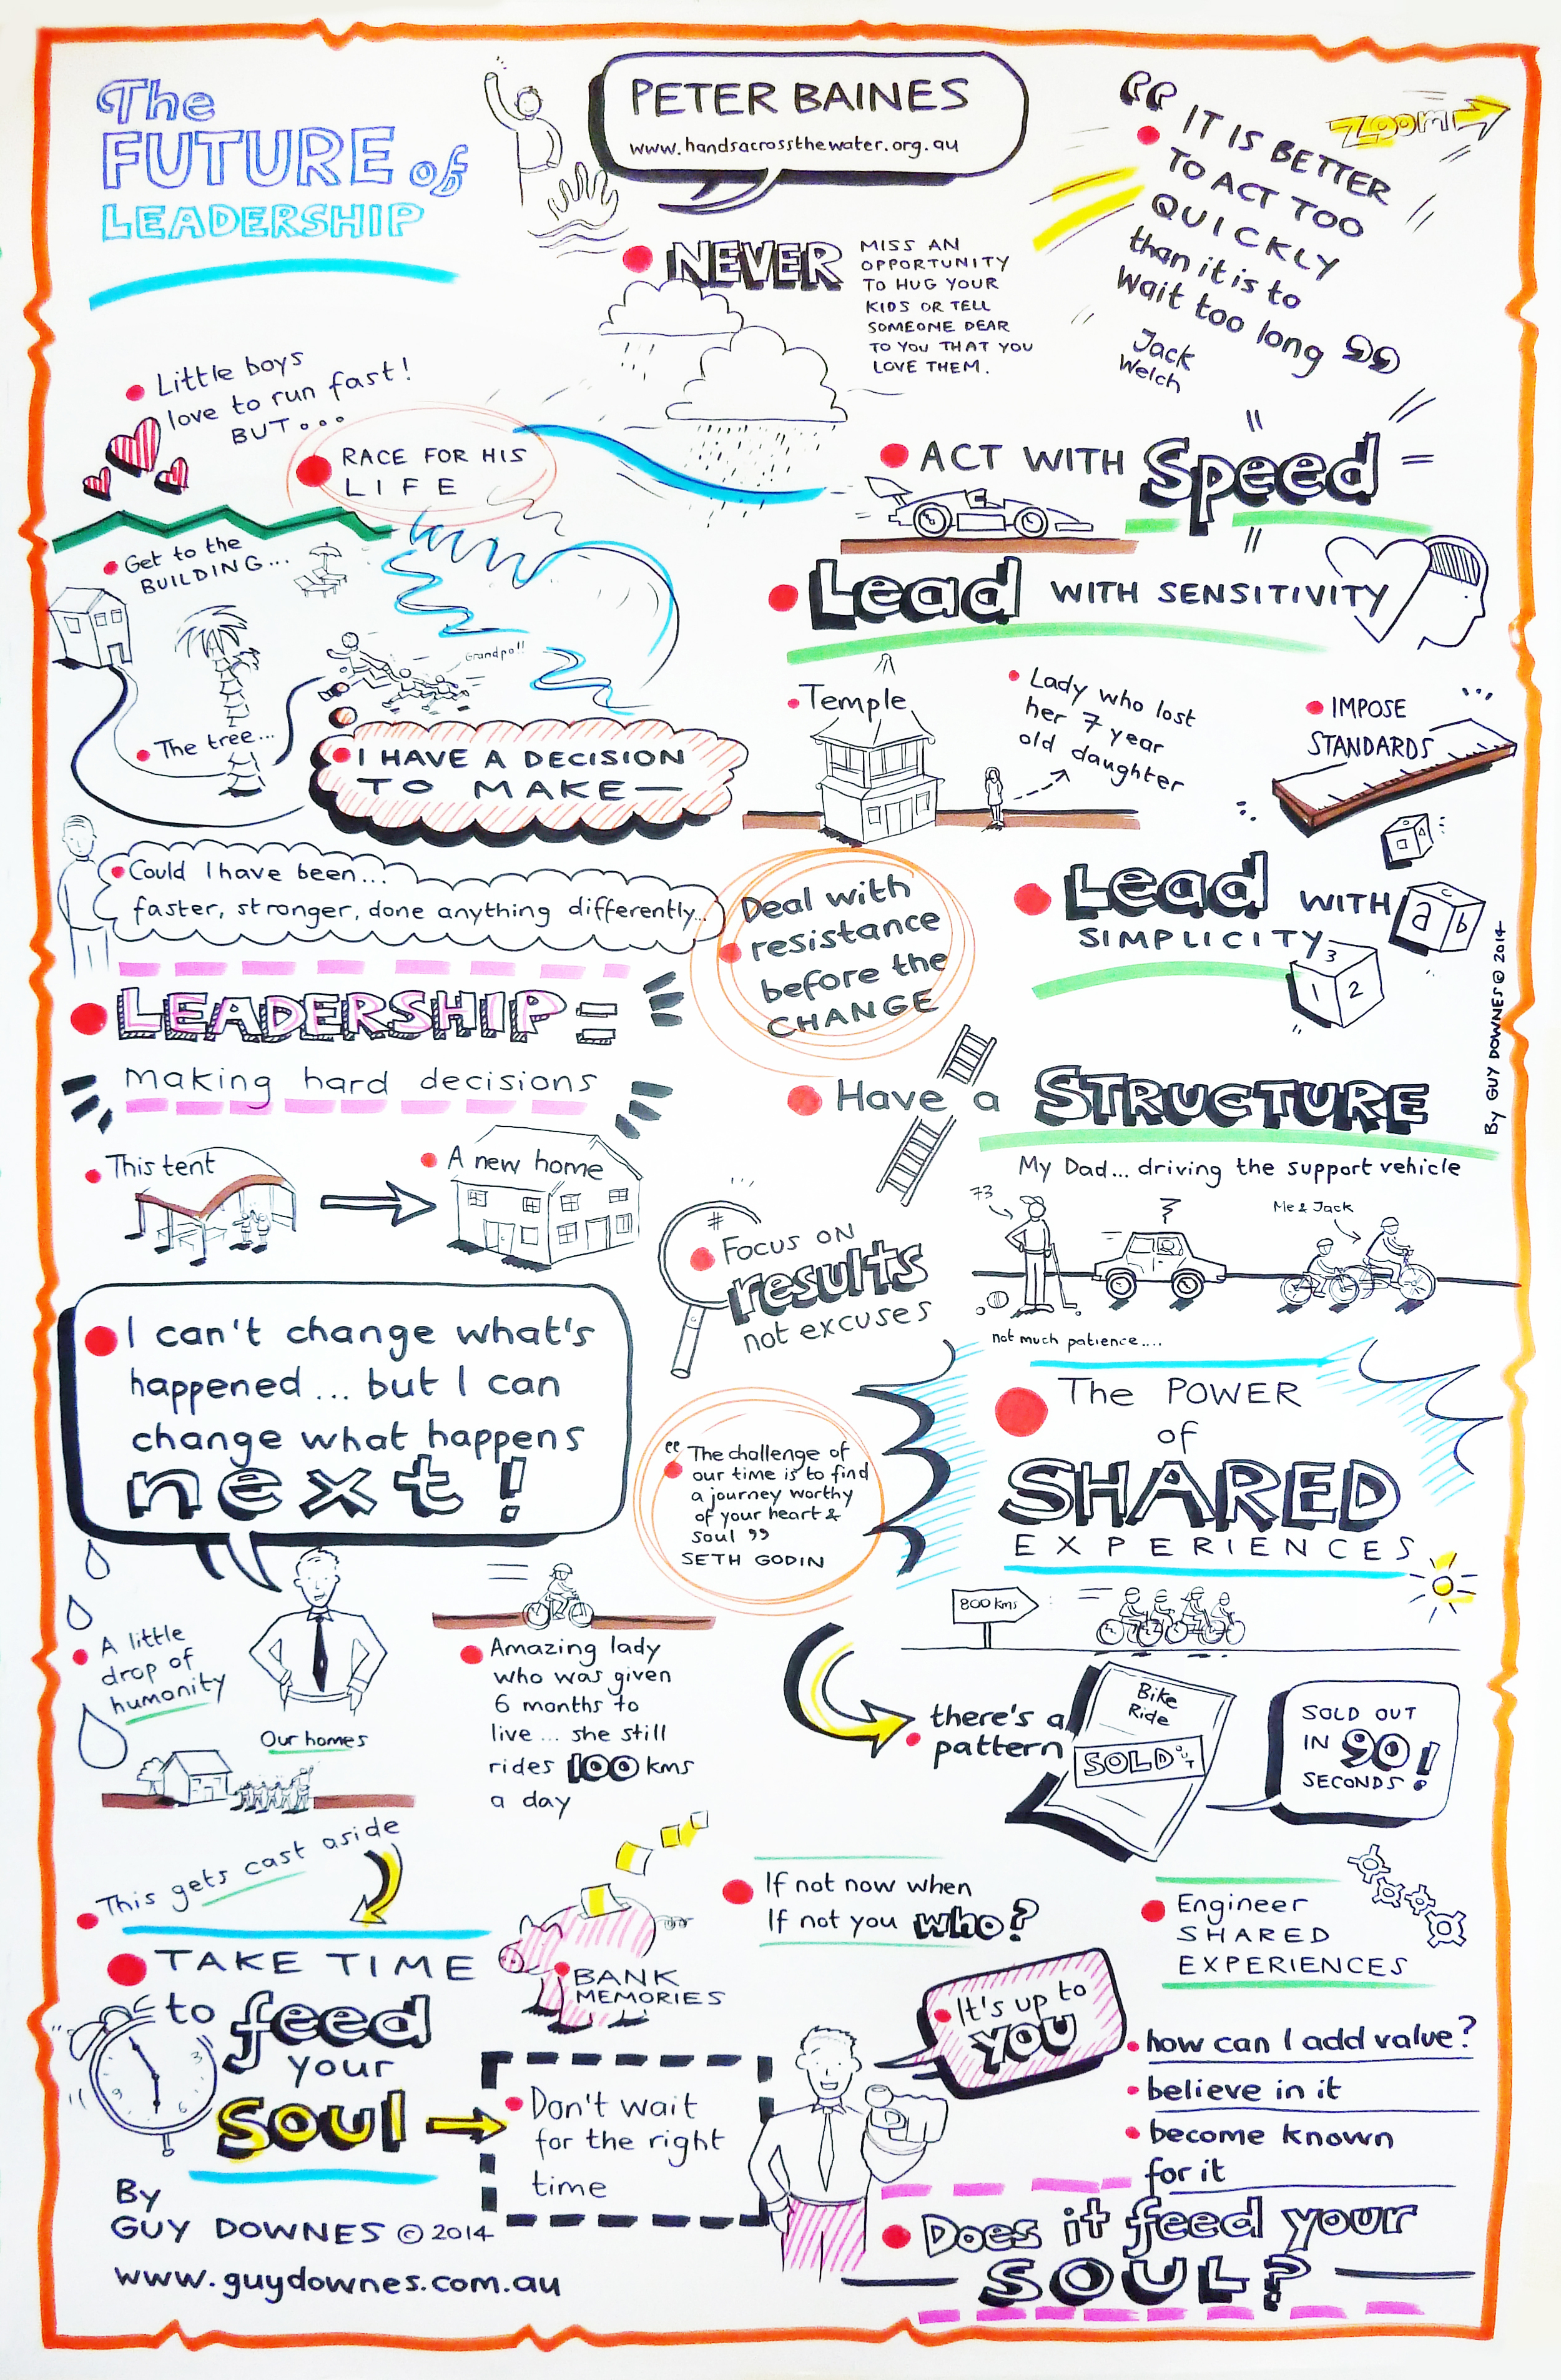 The
FUTURE of
LEADERSHIP
PETER BAINES
www.handsacrossthewater.org.au
NEVER
MISS AN
OPPORTUNITY
TO HUG YOUR
KIDS OR TELL
SOMEONE DEAR
TO YOU THAT YOU
LOVE THEM.
Zoom
“ IT IS BETTER
TO ACT TOO
QUICKLY
than it is to
Wait too long ”
Jack
Welch
Little boys
love to run fast!
BUT...
RACE FOR HIS
LIFE
ACT WITH Speed
Get to the
BUILDING...
Grandpa!!
The tree...
I HAVE A DECISION
TO MAKE—
Lead WITH SENSITIVITY
Temple
Lady who lost
her 7 year
old daughter
IMPOSE
STANDARDS
Could I have been...
faster, stronger, done anything differently...
Deal with
resistance
before the
CHANGE
Lead WITH
SIMPLICITY
a b c
1 2 3
By GUY DOWNES © 2014
LEADERSHIP =
making hard decisions
Have a STRUCTURE
This tent
A new home
My Dad... driving the support vehicle
73
Me & Jack
not much patience....
#
FOCUS ON
results
not excuses
I can't change what's
happened... but I can
change what happens
next!
“The challenge of
our time is to find
a journey worthy
of your heart &
soul”
SETH GODIN
The POWER
of
SHARED
EXPERIENCES
800 kms
A little
drop of
humanity
Our homes
Amazing lady
who was given
6 months to
live... she still
rides 100 kms
a day
there's a
pattern
Bike
Ride
SOLD OUT
SOLD OUT
IN 90
SECONDS!
This gets cast aside
TAKE TIME
to feed
your
SOUL
3
6
9
BANK
MEMORIES
If not now when
If not you who?
Engineer
SHARED
EXPERIENCES
It's up to
YOU
how can I add value?
believe in it
become known
for it
Don't wait
for the right
time
Does it feed your
SOUL?
By
GUY DOWNES © 2014
www.guydownes.com.au